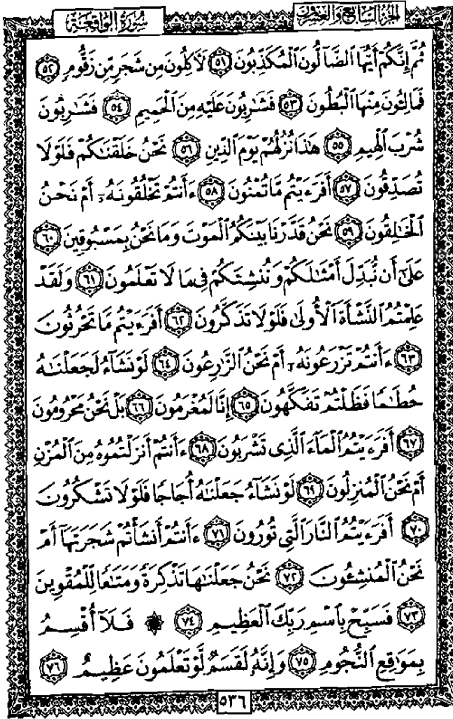 سُورَةُ الْوَاقِعَةِ
الجزء السابع والعشرون
ثُمَّ إِنَّكُمْ أَيُّهَا الضَّآلُّونَ الْمُكَذِّبُونَ ٥١ لَآكِلُونَ مِن شَجَرٍ مِّن زَقُّومٍ ٥٢
فَمَالِئُونَ مِنْهَا الْبُطُونَ ٥٣ فَشَارِبُونَ عَلَيْهِ مِنَ الْحَمِيمِ ٥٤ فَشَارِبُونَ
شُرْبَ الْهِيمِ ٥٥ هَٰذَا نُزُلُهُمْ يَوْمَ الدِّينِ ٥٦ نَحْنُ خَلَقْنَاكُمْ فَلَوْلَا
تُصَدِّقُونَ ٥٧ أَفَرَءَيْتُم مَّا تُمْنُونَ ٥٨ ءَأَنتُمْ تَخْلُقُونَهُۥٓ أَمْ نَحْنُ
الْخَالِقُونَ ٥٩ نَحْنُ قَدَّرْنَا بَيْنَكُمُ الْمَوْتَ وَمَا نَحْنُ بِمَسْبُوقِينَ ٦٠
عَلَىٰٓ أَن نُّبَدِّلَ أَمْثَالَكُمْ وَنُنشِئَكُمْ فِى مَا لَا تَعْلَمُونَ ٦١ وَلَقَدْ
عَلِمْتُمُ النَّشْأَةَ الْأُولَىٰ فَلَوْلَا تَذَكَّرُونَ ٦٢ أَفَرَءَيْتُم مَّا تَحْرُثُونَ
٦٣ ءَأَنتُمْ تَزْرَعُونَهُۥٓ أَمْ نَحْنُ الزَّارِعُونَ ٦٤ لَوْ نَشَآءُ لَجَعَلْنَاهُ
حُطَامًا فَظَلْتُمْ تَفَكَّهُونَ ٦٥ إِنَّا لَمُغْرَمُونَ ٦٦ بَلْ نَحْنُ مَحْرُومُونَ
٦٧ أَفَرَءَيْتُمُ الْمَآءَ الَّذِى تَشْرَبُونَ ٦٨ ءَأَنتُمْ أَنزَلْتُمُوهُ مِنَ الْمُزْنِ
أَمْ نَحْنُ الْمُنزِلُونَ ٦٩ لَوْ نَشَآءُ جَعَلْنَاهُ أُجَاجًا فَلَوْلَا تَشْكُرُونَ
٧٠ أَفَرَءَيْتُمُ النَّارَ الَّتِى تُورُونَ ٧١ ءَأَنتُمْ أَنشَأْتُمْ شَجَرَتَهَآ أَمْ
نَحْنُ الْمُنشِئُونَ ٧٢ نَحْنُ جَعَلْنَاهَا تَذْكِرَةً وَمَتَاعًا لِّلْمُقْوِينَ
٧٣ فَسَبِّحْ بِاسْمِ رَبِّكَ الْعَظِيمِ ٧٤ ۞ فَلَآ أُقْسِمُ
بِمَوَاقِعِ النُّجُومِ ٧٥ وَإِنَّهُۥ لَقَسَمٌ لَّوْ تَعْلَمُونَ عَظِيمٌ ٧٦
٥٣٦